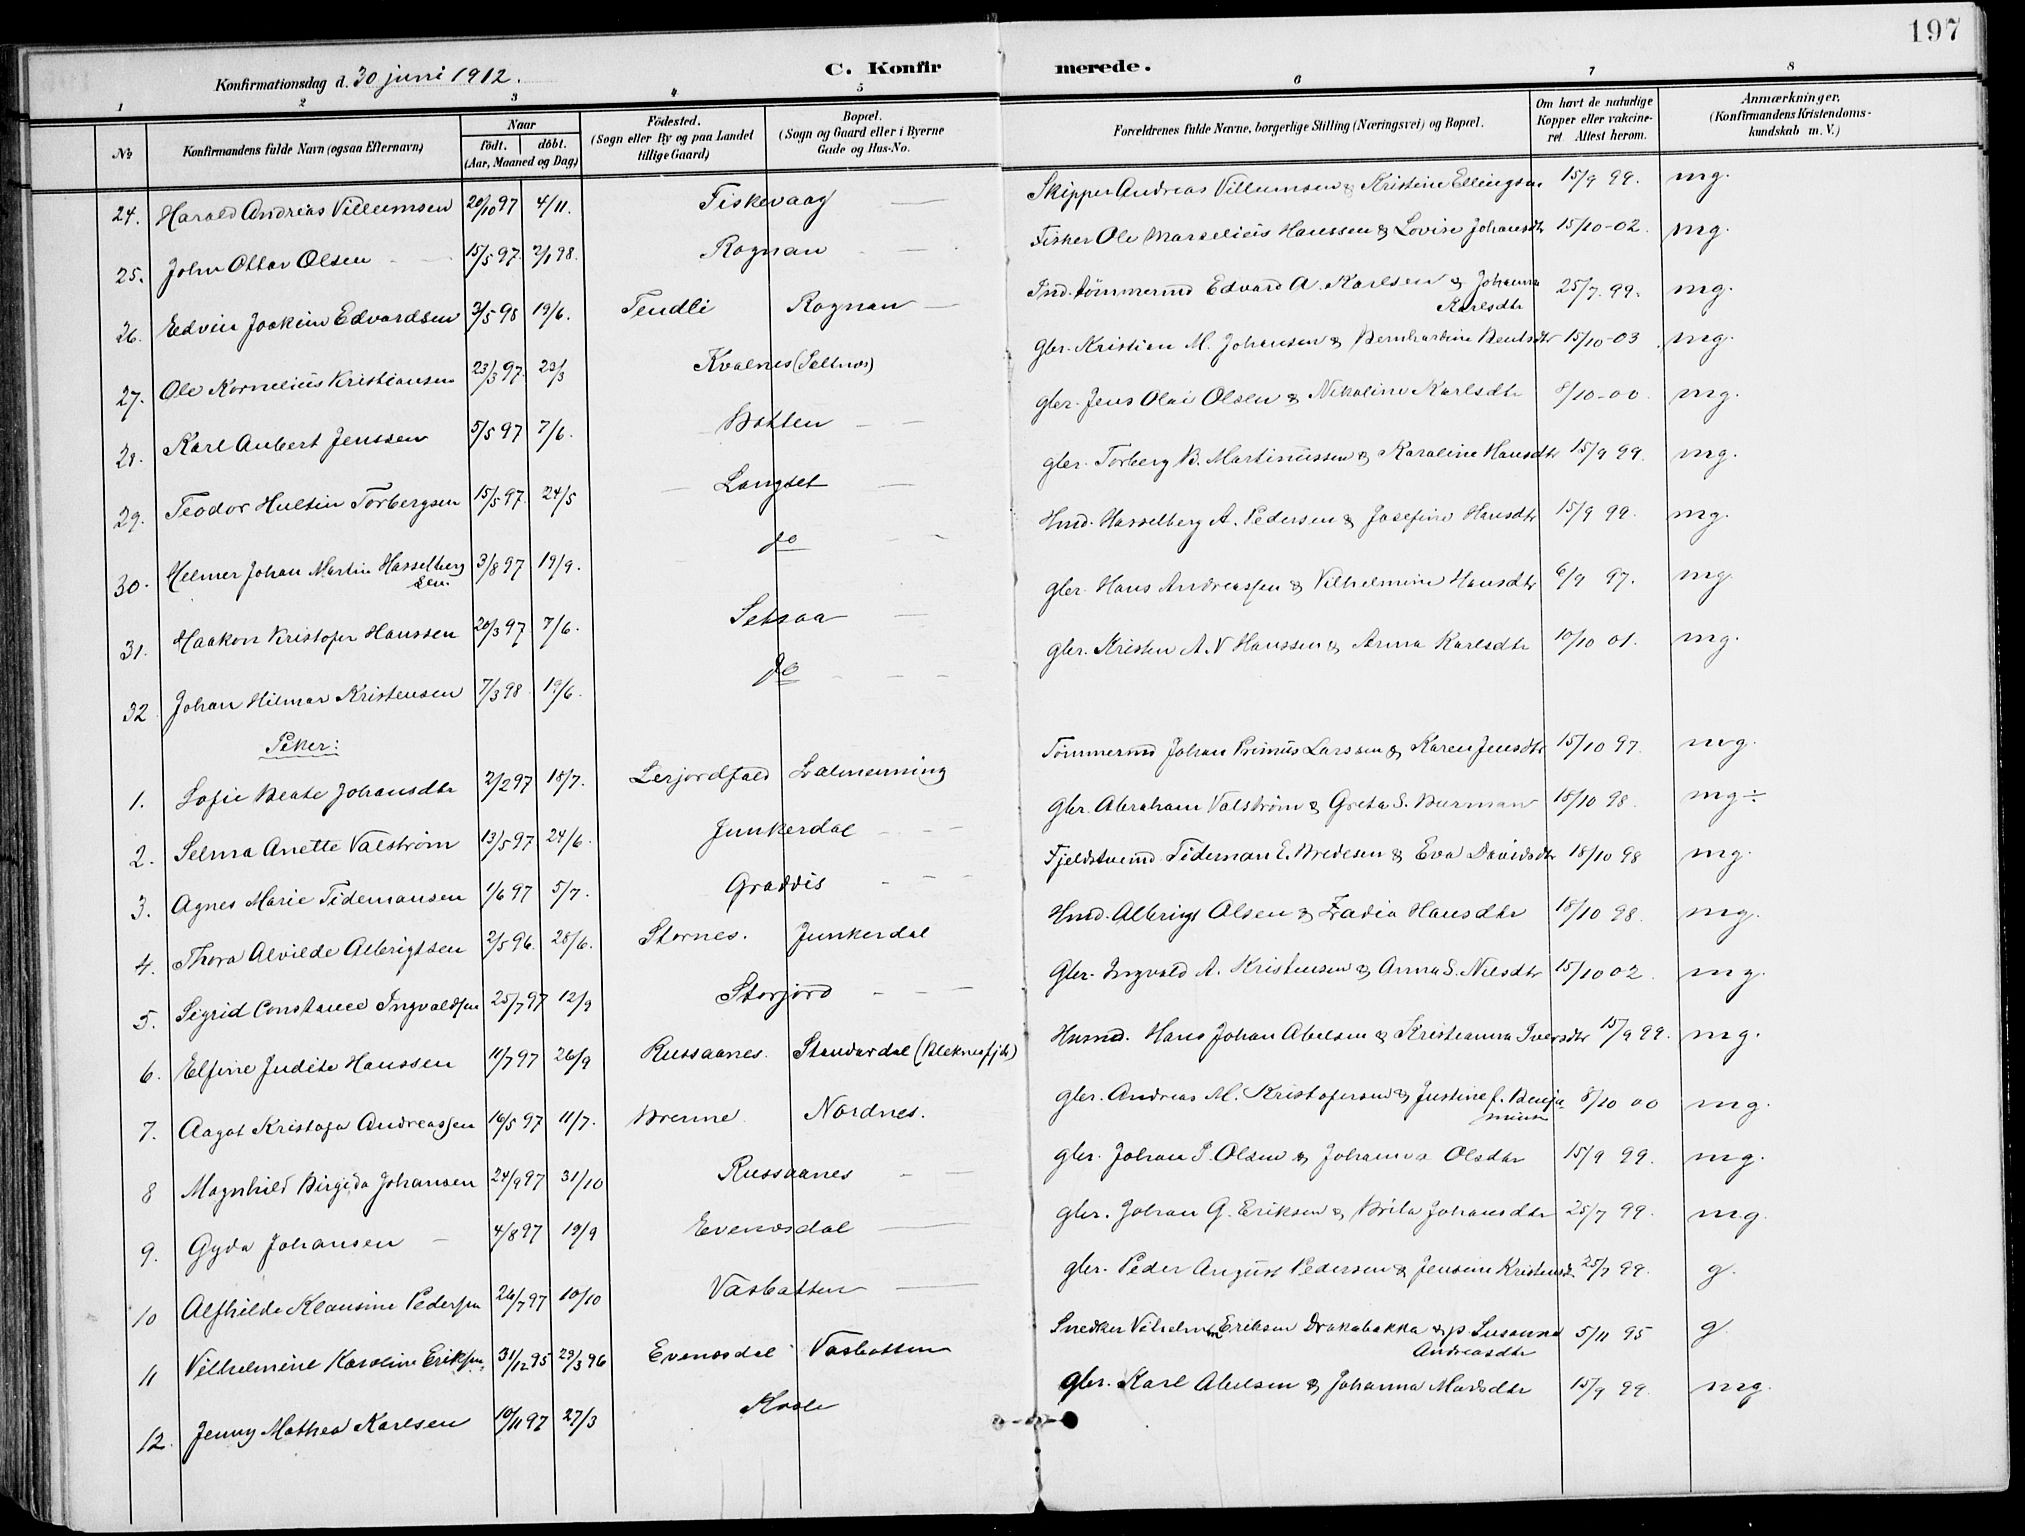 197
Konfirmationsdag d. 30 juni 1912. C. Konfirmerede.
1 2 3 4 5 6 7 8
No Konfirmandens fulde Navn (ogsaa Efternavn) Naar født. døbt. (Aar, Maaned og Dag) Födested. (Sogn eller By og paa Landet tillige Gaard) Bopæl. (Sogn og Gaard eller i Byerne Gade og Hus-No. Forældrenes fulde Navne, borgerlige Stilling (Næringsvei) og Bopæl. Om havt de naturlige Kopper eller vakcineret. Attest herom. Anmærkninger. (Konfirmandens Kristendomskundskab m. V.)
24. Harald Andreas Villumsen 20/10 97 4/11. Fiskevaag Skipper Andreas Villumsen & Kristine Ellingsen 15/9 99. mg.
25. John Ottar Olsen 15/5 97. 2/1 98. Rognan Fisker Ole Marselius Hanssen & Lovise Johansdtr 15/10-02. mg.
26. Edvin Joakim Edvardsen 3/5 98 19/6. Tendli Rognan Ind. tömmermd Edvard A. Karlsen & Johanna Karlsdtr 25/7. 99. mg.
27. Ole Kornelius Kristiansen 23/3 97. 23/3 Kvalnes (Saltnes) gbr. Kristian M. Johansen & Bernhardine Bentsdtr 15/10-03. mg.
28. Karl Aubert Jenssen 5/5 97 7/6. Botten gbr. Jens Olai Olsen & Nikoline Karlsdtr 8/10-00 mg.
29. Teodor Hultin Torbergsen 15/5 97. 24/5 Langset gbr. Torberg B. Martinussen & Karoline Hansdtr 15/9 99. mg.
30. Helmer Johan Martin Hasselbergsen 3/8 97 19/9. do Hmd. Hasselberg A. Pedersen & Josefine Hansdtr 15/9 99. mg.
31. Haakon Kristofer Hanssen 20/3 97 7/6. Setsaa gbr. Hans Andreassen & Vilhelmine Hansdtr 6/9 97. mg.
32 Johan Hilmar Kristensen 7/3 98. 19/6. do gbr. Kristen A. N Hanssen & Anna Karlsdtr 10/10 01. mg.
Piker:
1. Sofie Beate Johansdtr 2/2 97 18/7. Lerjordfald Almenning Tömmermd Johan Primus Larssen & Karen Jensdtr 15/10 97. mg.
2. Selma Anette Valström 13/5 97 24/6. Junkerdal Gbr. Abraham Valström & Greta S. Burman 18/10 98. mg÷
3. Agnes Marie Tidemansen 1/6 97 5/7. Graddis Fjeldstuemd. Tideman E. Bredesen & Eva Davidsdtr 18/10 98 mg.
4. Thora Alvilde Albrigtsen 2/5 96. 28/6. Stornes. Junkerdal Hmd. Albrigt Olsen & Zadia Hansdtr 18/10 98. mg.
5. Sigrid Constance Ingvaldsen 25/7 97 12/9 Storjord Gbr. Ingvald A. Kristensen & Anna S. Nilsdtr 15/10 02. mg.
6. Elfine Judite Hanssen 11/7 97 26/9 Russaanes. Standardal (Bleknesfjh) Husmd. Hans Johan Abelsen & Kristianna Iversdtr 15/9 99. mg.
7. Aagot Kristofa Andreassen 16/5 97 11/7. Brenne Nordnes. gbr. Andreas M. Kristofersen & Justine f. Benjaminsen 8/10 00 mg.
8 Magnhild Birgida Johansen 24/9 97 31/10 Russaanes gbr. Johan P. Olsen & Johanna Olsdtr 15/9 99. mg.
9. Gyda Johansen 4/8 97 19/9 Evenesdal gbr. Johan G. Eriksen & Brita Johansdtr 25/7 99. mg.
10 Alfhilde Klausine Pedersen 26/7 97 10/10 Vasbotten gbr. Peder August Pedersen & Jensine Kristensd. 25/7 99. g.
11 Vilhelmine Karoline Eriksen 31/12 95 29/3 96 Evenesdal Vasbotten Snedker Vilhelm Eriksen Drakabakka & p. Susanna Andreasdtr 5/11 95 g.
12. Jenny Mathea Karlsen 10/11 97 27/3 gbr. Karl Abelsen & Johanna Marsdtr 15/9 99. mg.